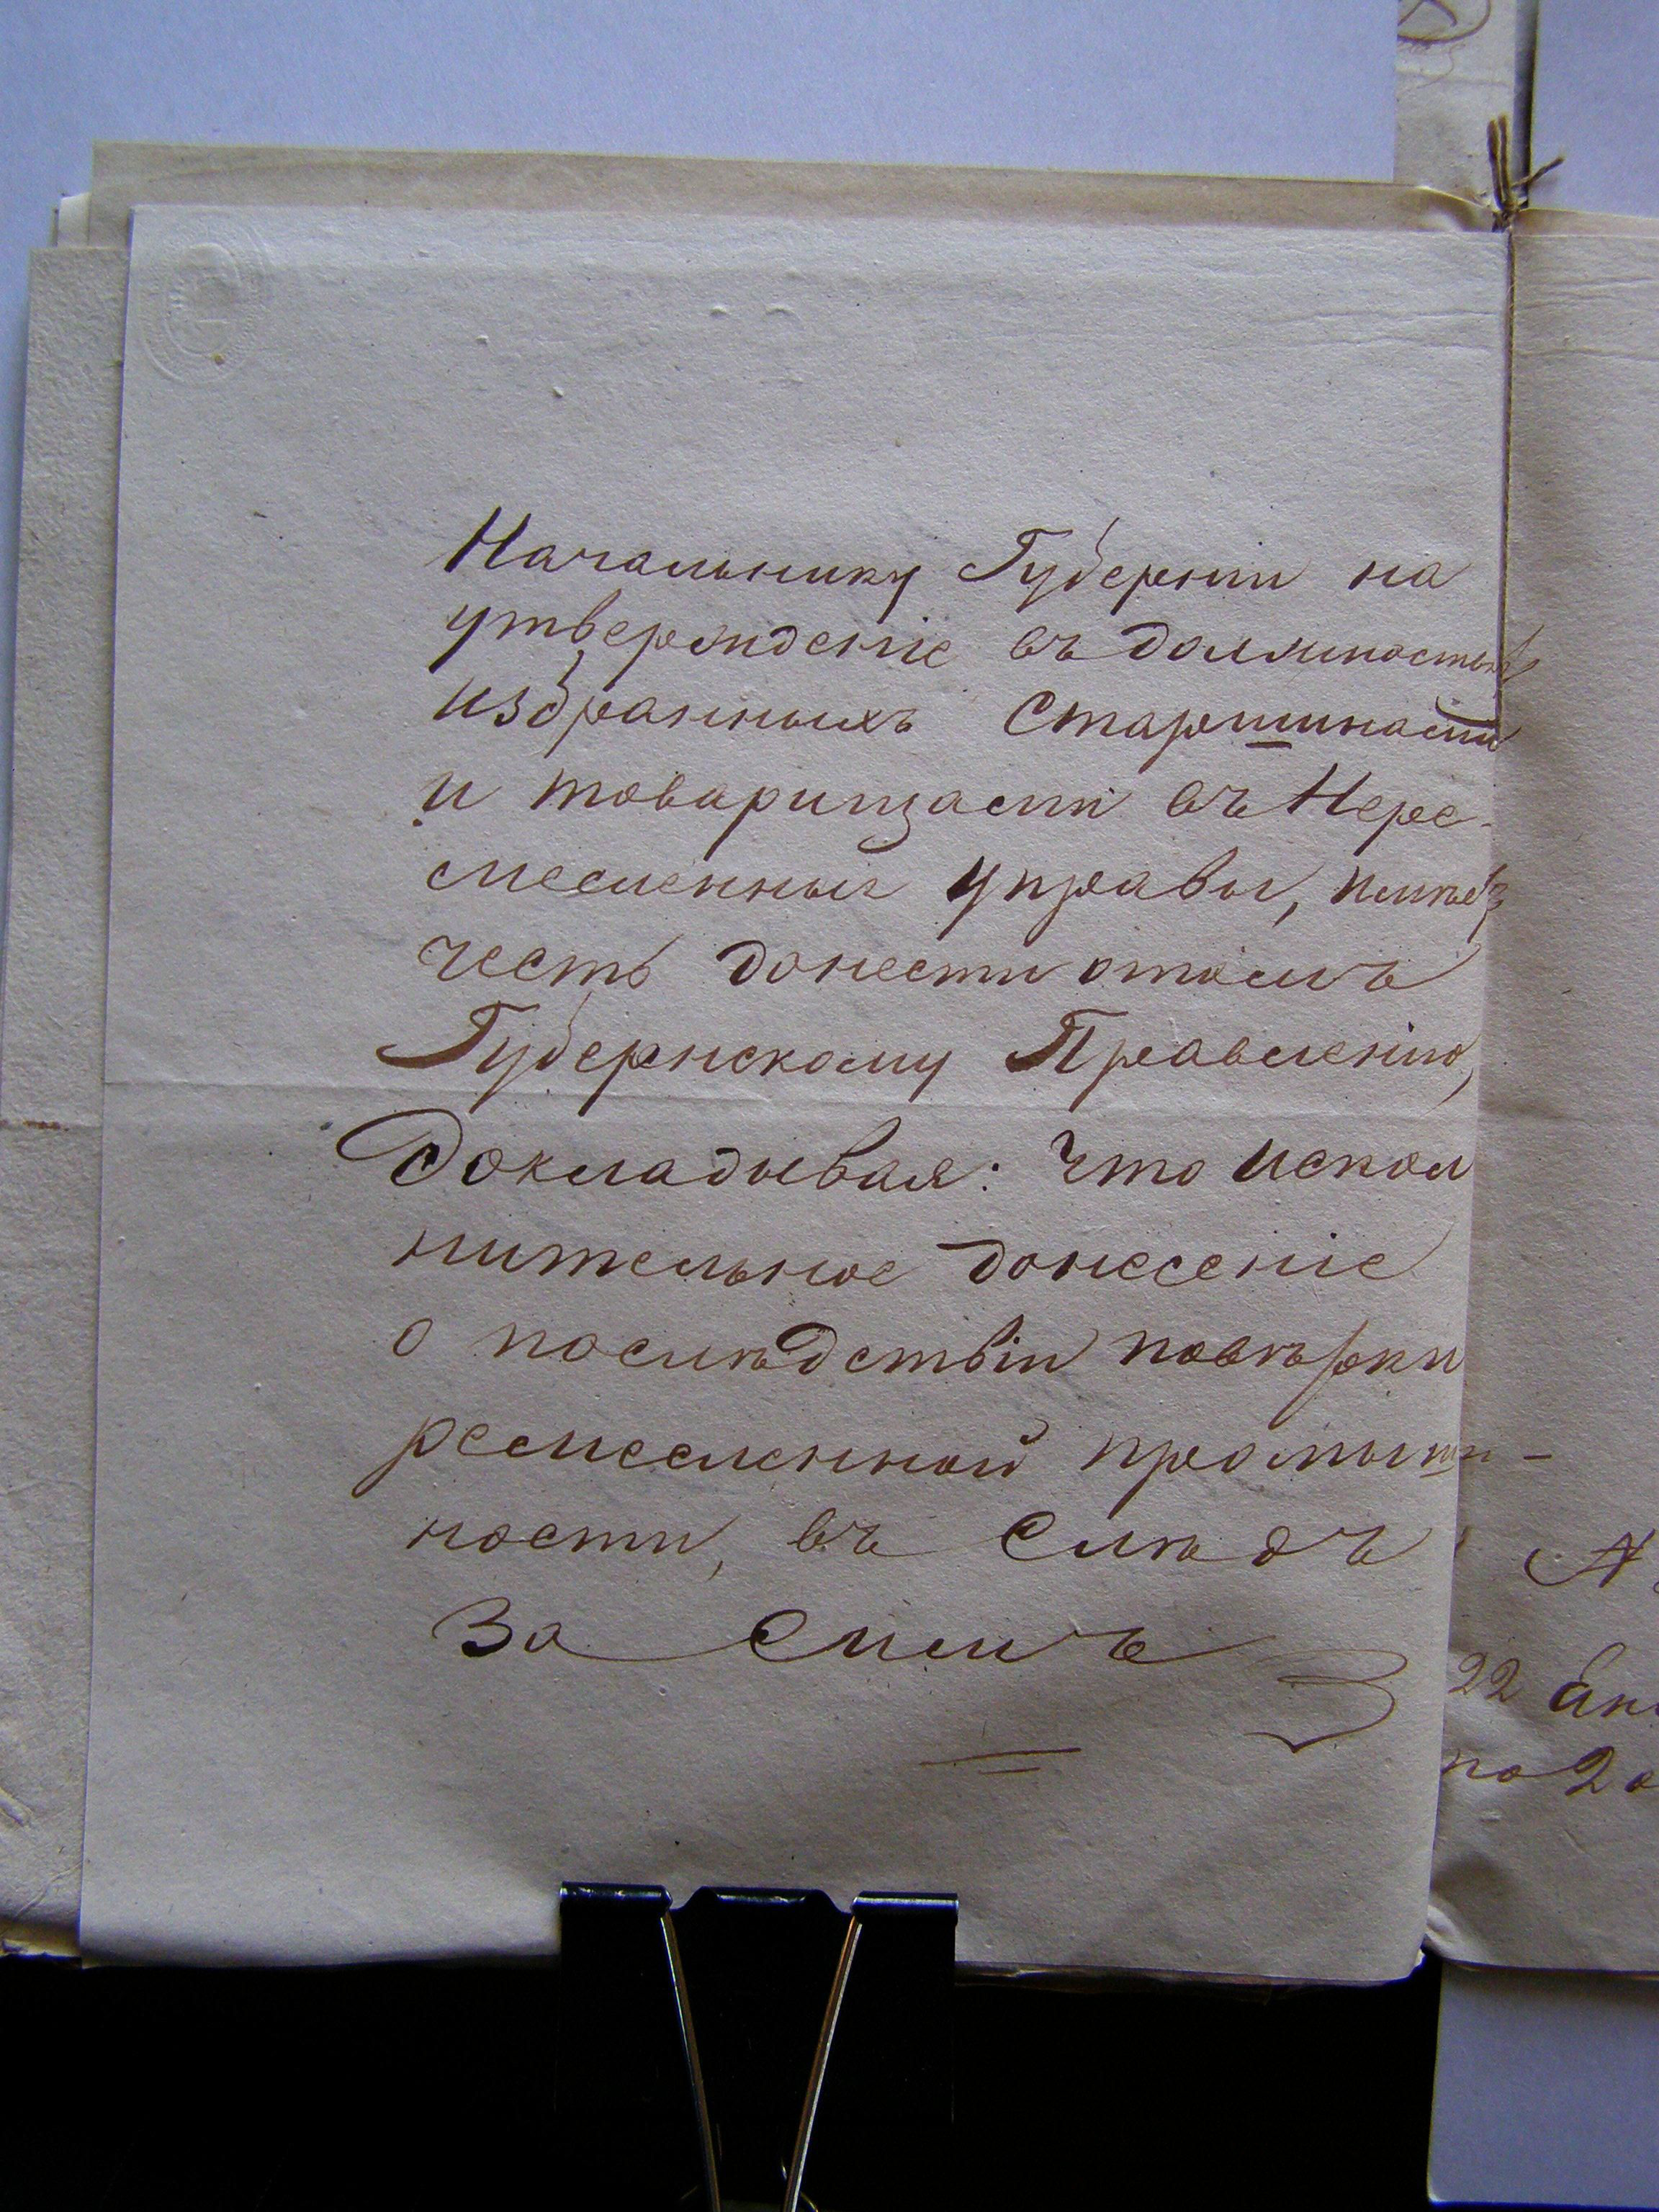 Начальнику Губерніи на
утвержденіе въ должностяхъ
избранныхъ Старшинами
и товарищами въ Нере-
месленныя управы, имѣетъ
честь донести отомъ
Губернскому Правленію,
Докладывая: что испол
нительное донесеніе
о послѣдствіи повѣрки
ремесленной промышлен-
ности, въ слѣдъ
за симъ
22